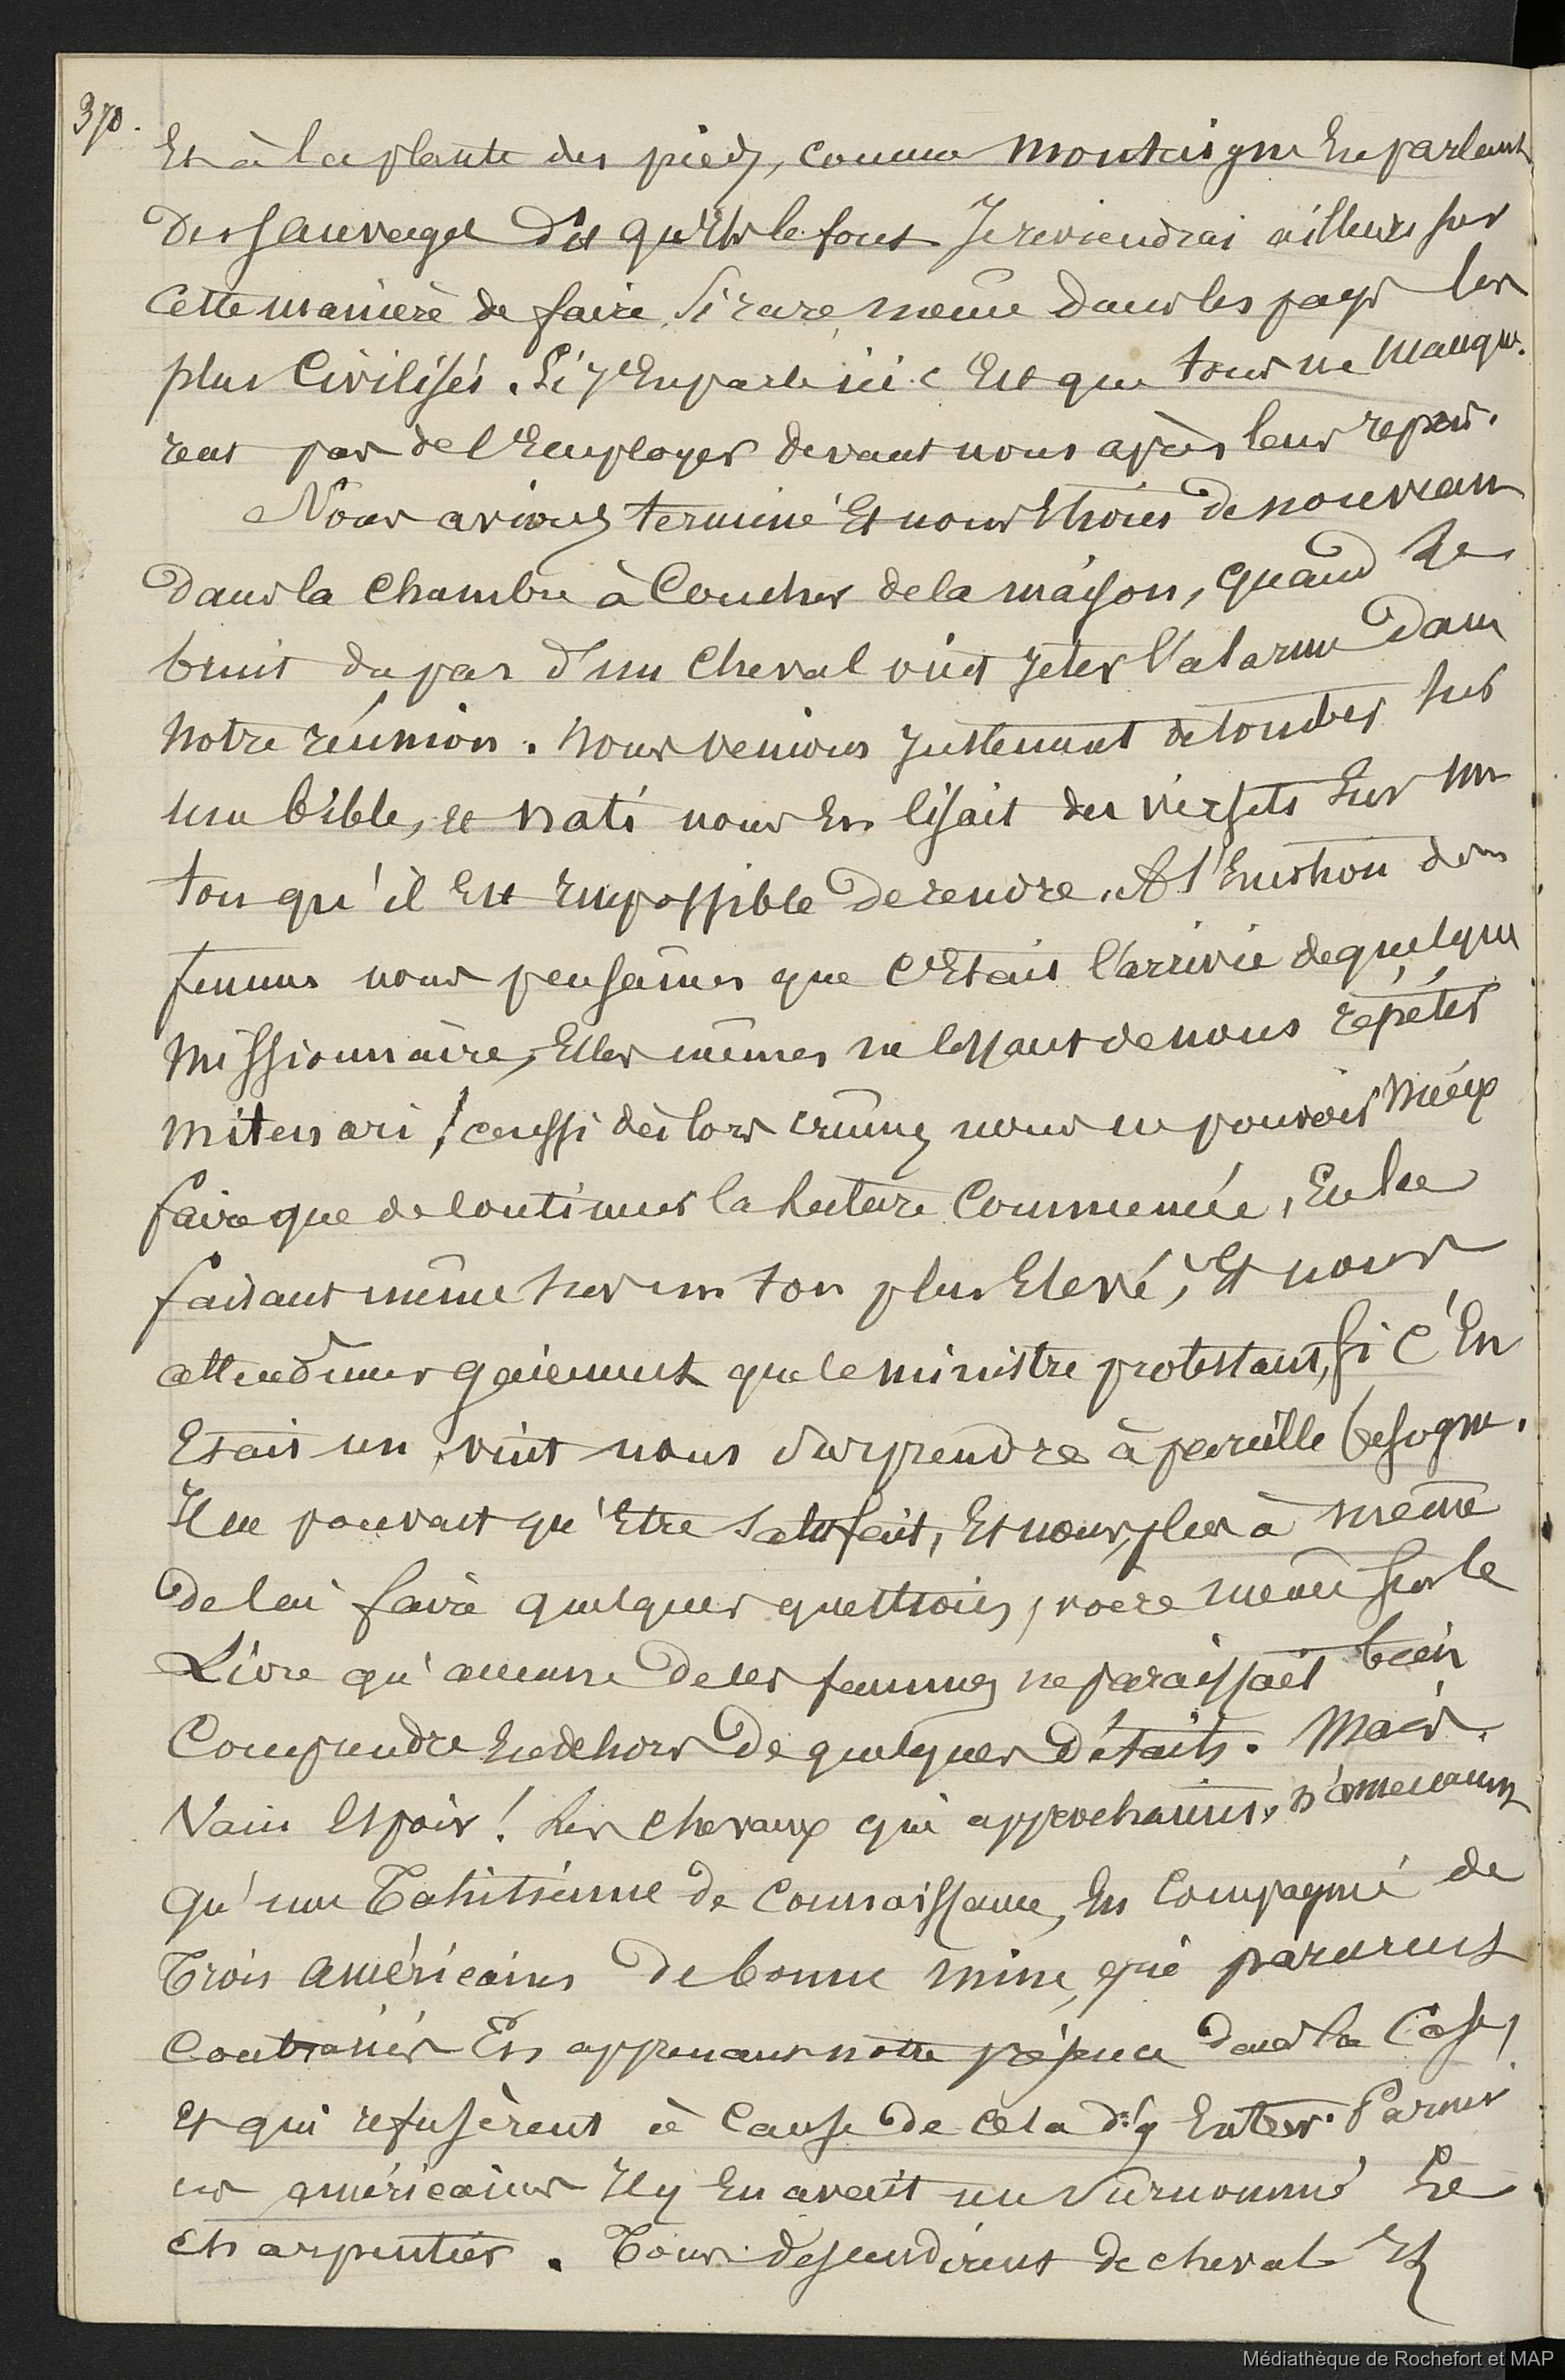 370.
Et à la plante des pieds, comme Montaigne En parlant
Des Sauvages dit qu'Ils le font Je reviendrai ailleurs sur
Cette manière de faire, si rare même dans les pays les
plus Civilisés. Si j'En parle ici c'Est que tous ne manquè.
rent pas de l'Employer devant nous après leur repas.
Nous avions terminé Et nous Etions De nouveau
Dans la Chambre à Coucher de la maison, quand le
bruit du pas d'un Cheval vint jeter l'alarme Dans
Notre réunion. Nous venions justement de tomber sur
une bible, et nous En lisait des versets sur un
ton qu'il Est Impossible De rendre. A l'Emotion des
femmes nous pensâmes que C'Etait l'arrivée de quelque
Missionnaire, Elles mêmes ne Cessant de nous répéter
mitenari ! aussi dès lors crûmes nous ne pouvoir mieux
faire que de Continuer la lecture Commencée, En la
faisant même sur un ton plus Elevé, Et nous
attendîmes gaiement que le ministre protestant, si C'En
Etait un, vint nous Surprendre à pareille besogne.
Il ne pouvait qu'Etre Satisfait, Et nous, plus à même
De lui faire quelques questions, voire même sur le
Livre qu'aucune De ces femmes ne paraissait bien
Comprendre En dehors De quelques Détails. Mais.
Vain Espoir ! Les Chevaux qui approchaient, n'amenaient
qu'une Tahitienne de Connaissance, En Compagnie de
Trois Américains De bonne mine, qui parurent
Contrariés En apprenant notre présence Dans la Case,
Et qui refusèrent à Cause De Cela d'y Entrer. Parmi
ces américains Il y En avait un Surnommé Le
Charpentier. Tous descendirent de cheval Et
Médiathèque de Rochefort et MAP